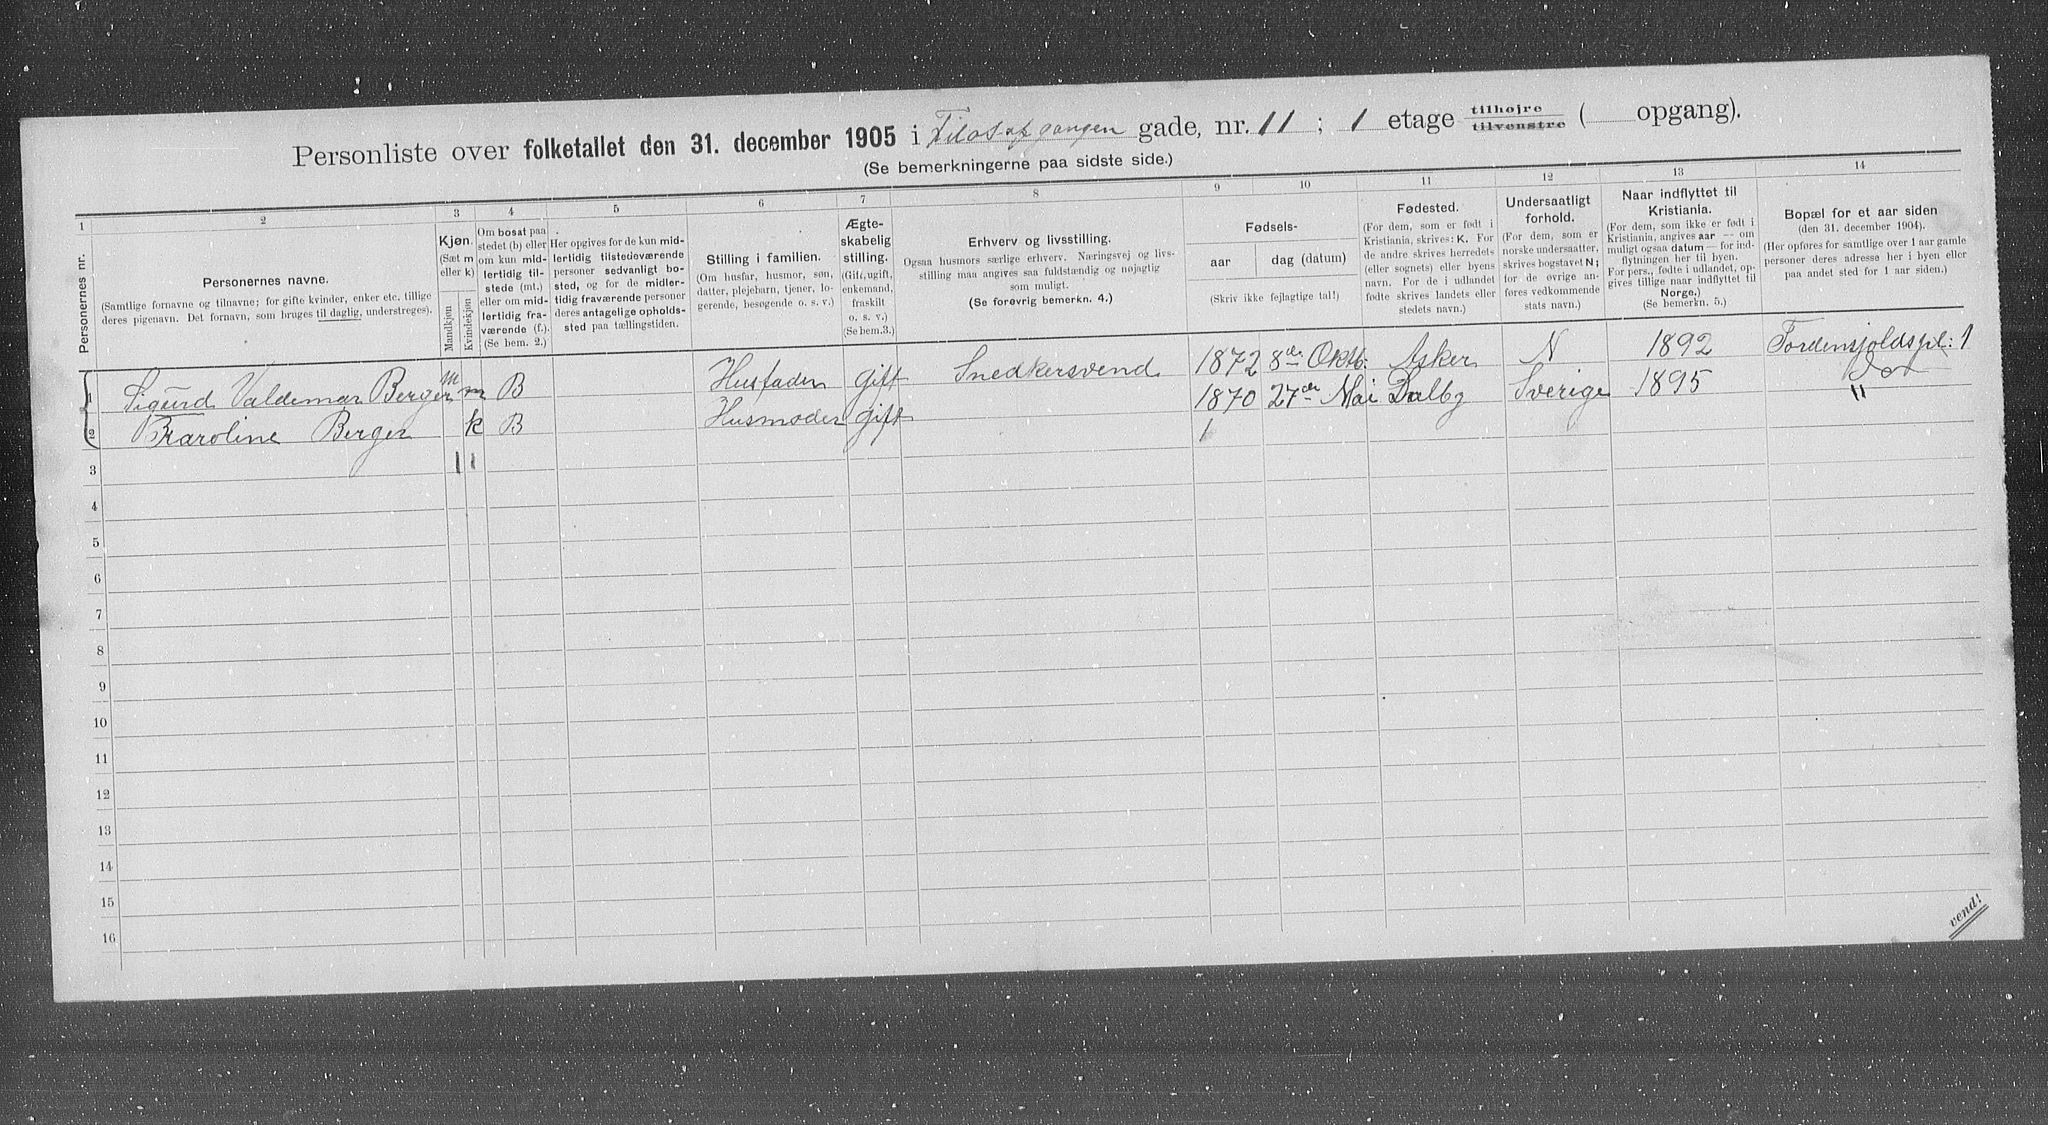 Personliste over folketallet den 31. december 1905 i Filosofgangen gade, nr. 11 ; 1 etage tilhøjre tilvenstre ( opgang).
(Se bemerkningerne paa sidste side.)
1 2 3 4 5 6 7 8 9 10 11 12 13 14
Personernes nr.
Personernes navne.
(Samtlige fornavne og tilnavne; for gifte kvinder, enker etc. tillige
deres pigenavn. Det fornavn, som bruges til daglig, understreges).
Kjøn.
(Sæt m
eller k)
Mandkjøn
Kvindekjøn
Om bosat paa
stedet (b) eller
om kun mid-
lertidig til-
stede (mt.)
eller om mid-
lertidig fra-
værende (f.).
(Se bem. 2.)
Her opgives for de kun mid-
lertidig tilstedeværende
personer sedvanligt bo-
sted, og for de midler-
tidig fraværende personer
deres antagelige opholds-
sted paa tællingstiden.
Stilling i familien.
(Om husfar, husmor, søn,
datter, plejebarn, tjener, lo-
gerende, besøgende o. s. v.)
Ægte-
skabelig
stilling.
(Gift, ugift,
enkemand,
fraskilt
o. s. v.)
(Se bem.3.)
Erhverv og livsstilling.
Ogsaa husmors særlige erhverv. Næringsvej og livs-
stilling maa angives saa fuldstændig og nøjagtig
som muligt.
(Se forøvrig bemerkn. 4.)
Fødsels-
aar
dag (datum)
(Skriv ikke fejlagtige tal!)
Fødested.
(For dem, som er født i
Kristiania, skrives: K. For
de andre skrives herredets
(eller sognets) eller byens
navn. For de i udlandet
fødte skrives landets eller
stedets navn.)
Undersaatligt
forhold.
(For dem, som er
norske undersaatter,
skrives bogstavet N;
for de øvrige an-
føres vedkommende
stats navn.)
Naar indflyttet til
Kristiania.
(For dem, som ikke er født i
Kristiania, angives aar — om
muligt ogsaa datum — for ind-
flytningen her til byen.
For pers., fødte i udlandet, op-
gives tillige naar indflyttet til
Norge.)
(Se bemerkn. 5.)
Bopæl for et aar siden
(den 31. december 1904).
(Her opføres for samtlige over 1 aar gamle
personer deres adresse her i byen eller
paa andet sted for 1 aar siden.)
1 Sigurd Valdemar Berger m m B Husfader gift Snedkersvend 1872 8de Oktb: Asker N 1892 Tordensjoldspl: 1
2 Karoline Berger k B Husmoder gift 1870 27de Mai Dalby Sverige 1895 "
3 1 1
4
5
6
7
8
9
10
11
12
13
14
15
16
vend!